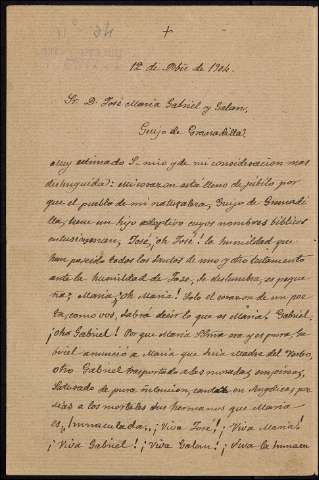 +
12 de Dbre de 1904.
Sr. D. José María Gabriel y Galan,
Guijo de Granadilla.
Muy estimado Sr mio y de mi consideracion mas
distinguida: Mi corazon está lleno de júbilo por
que el pueblo de mi naturaleza, Guijo de Granadi-
lla, tiene un hijo adoptivo cuyos nombres bíblicos
entusiasman, José, ¡oh José! la humildad que
han poseido todos los santos de uno y otro testamento
ante la humildad de José, se deslumbra, es peque
ña; María, ¡oh María! Solo el corazon de un poe-
ta, como vos, sabrá decir lo que es María. Gabriel,
¡oh Gabriel! Por que María era y es pura, Ga-
briel anunció a María que seria Madre del Verbo,
otro Gabriel trasportado a las moradas,
saturado de pura
a los mortales sus hermanos que María
es, Inmaculada. ¡Viva José! ¡Viva María!
¡Viva Gabriel! ¡Viva Galan! ¡Viva la Inmacu